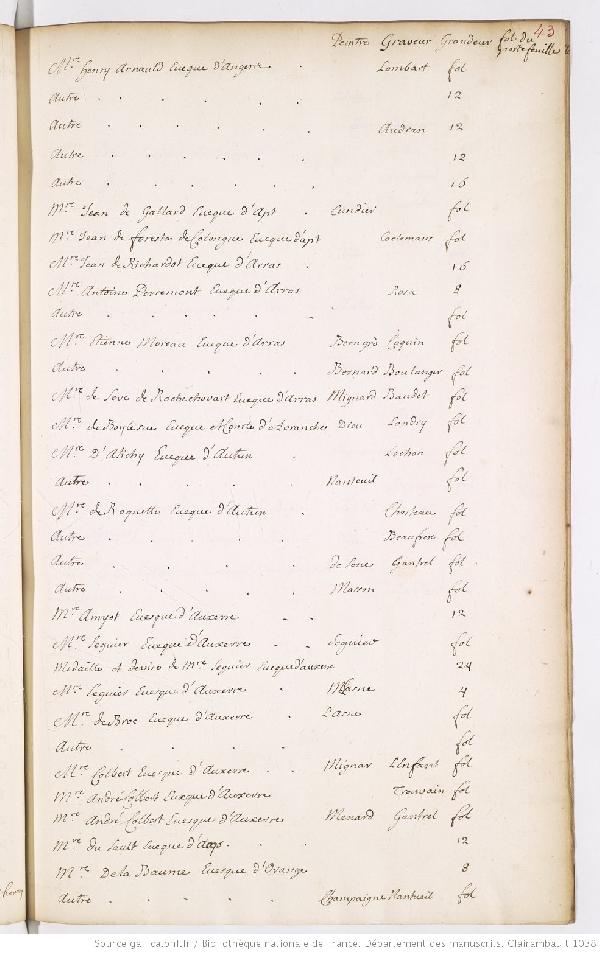 43
Peintre Graveur Grandeur fol. du
portefeuille
Mre henry Arnauld Eueque d'Angers . Lombart fol
Autre . . . . . 12
Autre . . . . . Audran 12
Autre . . . . . 12
Autre . . . . . 16
Mre Jean de Gallard Eueque d'Apt . Cundier fol
Mre Jean de foresta de Colongue Eueque d'apt Coelemans fol
Mre Jean de Richardot Eueque d'Arras . 16
Mre Antoine Eueque d'Arras 8
Autre . . . . . fol
Mre Etienne Moreau Eueque d'Arras fol
Autre . . . . . Bernard Boulanger fol
Mre de Seve de Rochechouart Eueque d'Arras Mignard Baudet fol
Mre de Boylesue Eueque d'Avranches Dieu Landry fol
Mre D'Attichy Eueque d'Autun . Lochon fol
Autre . . . . Nanteuil fol
Mre de Roquette Eueque d'Autun . fol
Autre . . . . . Beaufrere fol
Autre . . . . de Seue Gantrel fol .
Autre . . . . Masson fol
Mre Amyot Euesque d'Auxerre . . 12
Mre Seguier Eueque d'Auxerre . . Seguier fol
Medaille et devise de Mre Seguier Eueque d'auxerre 24
Mre Seguier Euesque d'Auxerre . MLasne 4
Mre de Broc Eueque d'Auxerre . Lasne fol
Autre . . . . . fol
Mre Colbert Euesque d'Auxerre . . Mignar Lenfant fol
Mre André Colbert Eueque d'Auxerre Trouvain fol
Mre André Colbert Euesque d'Auxerre Menard Gantrel fol
Mre du Sault Eueque d'Acqs . . 12
Mre De la Baume Euesque d'Orange 8
Autre . . . . . Champaigne Nanteuil fol
henry
Source gallica.bnf.fr / Bibliothèque nationale de France. Département des manuscrits. Clairambault 1038